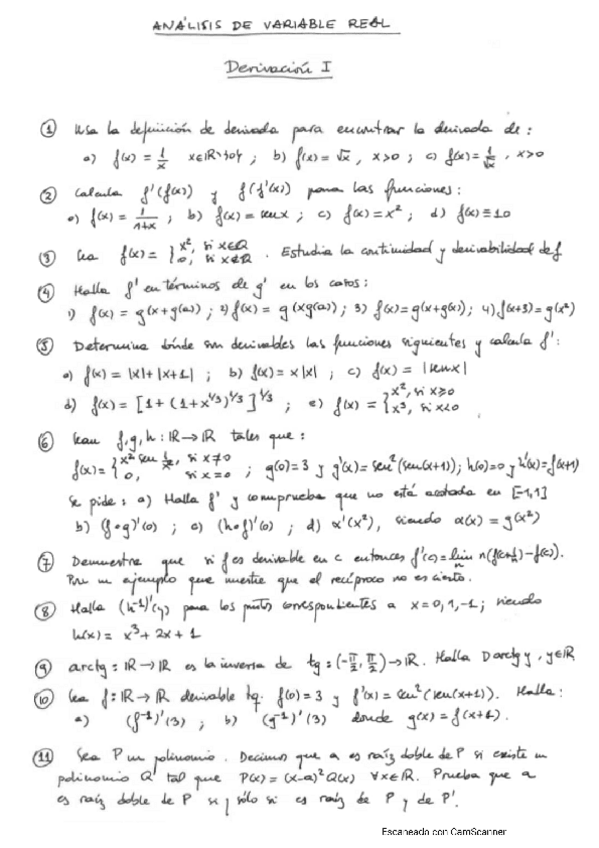 ANÁLISIS DE VARIABLE REAL
Derivación I
① Usa la definición de derivada para encontrar la derivada de:
a) f(x) = 1/x x∈ℝ∖{0}; b) f(x) = √x, x>0; c) f(x) = 1/√x, x>0
② Calcula f'(f(x)) y f(f'(x)) para las funciones:
a) f(x) = 1/(1+x); b) f(x) = sen x; c) f(x) = x²; d) f(x) ≡ 10
③ Sea f(x) = { x², si x∈ℚ; 0, si x∉ℚ. Estudia la continuidad y derivabilidad de f
④ Halla f' en términos de g' en los casos:
1) f(x) = g(x+g(a)); 2) f(x) = g(xg(a)); 3) f(x) = g(x+g(x)); 4) f(x+3) = g(x²)
⑤ Determina dónde son derivables las funciones siguientes y calcula f':
a) f(x) = |x|+|x+1|; b) f(x) = x|x|; c) f(x) = |sen x|
d) f(x) = [1+(1+x^1/3)^1/3]^1/3; e) f(x) = { x², si x≥0; x³, si x<0
⑥ Sean f,g,h: ℝ→ℝ tales que:
f(x) = { x² sen 1/x, si x≠0; 0, si x=0; g(0)=3 y g'(x)=sen²(sen(x+1)); h(0)=0 y h'(x)=f(x+1)
Se pide: a) Halla f' y comprueba que no está acotada en [-1,1]
b) (f∘g)'(0); c) (h∘f)'(0); d) α'(x²), siendo α(x) = g(x²)
⑦ Demuestra que si f es derivable en c entonces f'(c) = lim n (f(c+1/n) - f(c)).
Pon un ejemplo que muestre que el recíproco no es cierto.
⑧ Halla (h⁻¹)'(y) para los puntos correspondientes a x = 0, 1, -1; siendo
h(x) = x³ + 2x + 1
⑨ arctg: ℝ→ℝ es la inversa de tg: (-π/2, π/2)→ℝ. Halla D arctg y, y∈ℝ
⑩ Sea f: ℝ→ℝ derivable tq. f(0) = 3 y f'(x) = sen²(sen(x+1)). Halla:
a) (f⁻¹)'(3); b) (g⁻¹)'(3) donde g(x) = f(x+1).
⑪ Sea P un polinomio. Decimos que a es raíz doble de P si existe un
polinomio Q tal que P(x) = (x-a)² Q(x) ∀x∈ℝ. Prueba que a
es raíz doble de P si y sólo si es raíz de P y de P'.
Escaneado con CamScanner